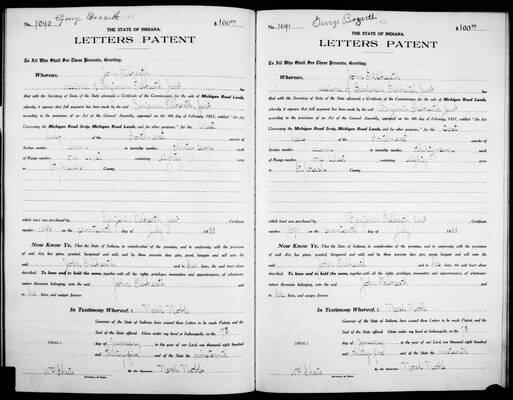 No. 1090 $100.00
THE STATE OF INDIANA.
LETTERS PATENT
To All Who Shall See These Presents, Greeting:
Whereas, John Egbreath
assignee of Benjamin Egbreath, Junr has
filed with the Secretary of State, of the State aforesaid, a Certificate of the Commissioner, for the sale of Michigan Road Lands,
whereby it appears that full payment has been made by the said Benjamin Junr
according to the provisions of an Act of the General Assembly, approved on the 4th day of February, 1831, entitled "An Act
Concerning the Michigan Road Scrip, Michigan Road Lands, and for other purposes," for the West
quarter of
Section number in township number thirty-seven
of Range number one West containing eighty
St Joseph County,
which tract was purchased by Benjamin Junr , Certificate
number 1090 on the nineteenth day of July 1833
Now Know Ye, That the State of Indiana, in consideration of the premises, and in conformity, with the provisions
of said Act, has given, granted, bargained and sold, and by these presents does give, grant, bargain and sell unto the
said John and to his heirs, the said tract above
described. To have and to hold the same, together with all the rights, privileges, immunities and appurtenances, of whatsoever
nature thereunto belonging, unto the said John
and to his heirs, and assigns forever.
In Testimony Whereof, I Noah Noble
Governor of the State of Indiana, have caused these Letters to be made Patent, and the
Seal of the State affixed. Given under my hand at Indianapolis, on the
[SEAL] day of January in the year of our Lord, one thousand eight hundred
and thirty-five and of the State the nineteenth
By the Governor: Noah Noble
Wm Sheets
Secretary of State.
No. 1091 George Bozarth $100.00
THE STATE OF INDIANA.
LETTERS PATENT
To All Who Shall See These Presents, Greeting:
Whereas, John
assignee of Benjamin Junr has
filed with the Secretary of State, of the State aforesaid, a Certificate of the Commissioner, for the sale of Michigan Road Lands,
whereby it appears that full payment has been made by the said Benjamin Junr
according to the provisions of an Act of the General Assembly, approved on the 4th day of February, 1831, entitled "An Act
Concerning the Michigan Road Scrip, Michigan Road Lands, and for other purposes," for the East
quarter of
Section number in township number thirty-seven
of Range number one West containing eighty
St Joseph County,
which tract was purchased by Benjamin Junr , Certificate
number 1091 on the nineteenth day of July 1833
Now Know Ye, That the State of Indiana, in consideration of the premises, and in conformity, with the provisions
of said Act, has given, granted, bargained and sold, and by these presents does give, grant, bargain and sell unto the
said John and to his heirs, the said tract above
described. To have and to hold the same, together with all the rights, privileges, immunities and appurtenances, of whatsoever
nature thereunto belonging, unto the said John
and to his heirs, and assigns forever.
In Testimony Whereof, I Noah Noble
Governor of the State of Indiana, have caused these Letters to be made Patent, and the
Seal of the State affixed. Given under my hand at Indianapolis, on the
[SEAL] day of January in the year of our Lord, one thousand eight hundred
and thirty-five and of the State the nineteenth
By the Governor: Noah Noble
Wm Sheets
Secretary of State.